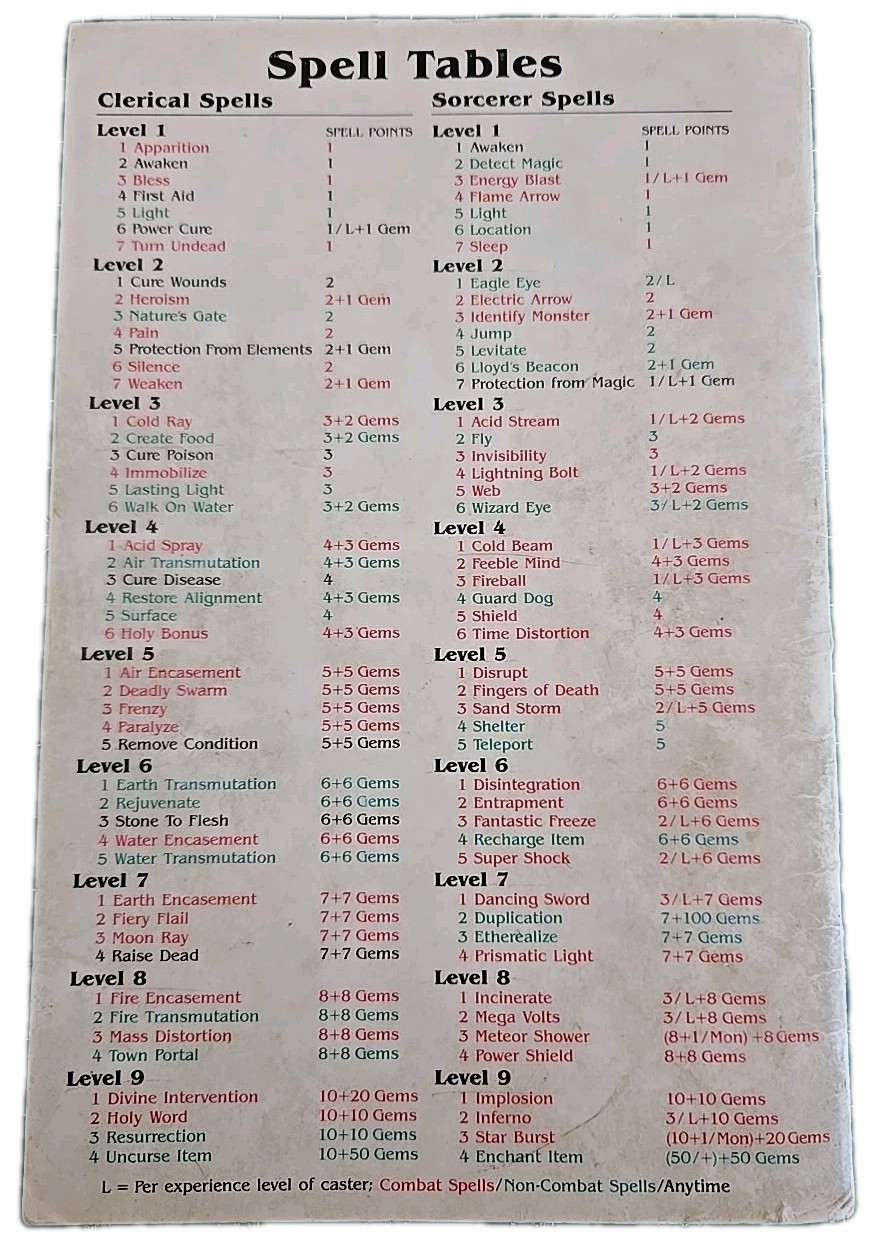 Spell Tables
Clerical Spells
Level 1 SPELL POINTS
1 Apparition 1
2 Awaken 1
3 Bless 1
4 First Aid 1
5 Light 1
6 Power Cure 1/L+1 Gem
7 Turn Undead 1
Level 2
1 Cure Wounds 2
2 Heroism 2+1 Gem
3 Nature's Gate 2
4 Pain 2
5 Protection From Elements 2+1 Gem
6 Silence 2
7 Weaken 2+1 Gem
Level 3
1 Cold Ray 3+2 Gems
2 Create Food 3+2 Gems
3 Cure Poison 3
4 Immobilize 3
5 Lasting Light 3
6 Walk On Water 3+2 Gems
Level 4
1 Acid Spray 4+3 Gems
2 Air Transmutation 4+3 Gems
3 Cure Disease 4
4 Restore Alignment 4+3 Gems
5 Surface 4
6 Holy Bonus 4+3 Gems
Level 5
1 Air Encasement 5+5 Gems
2 Deadly Swarm 5+5 Gems
3 Frenzy 5+5 Gems
4 Paralyze 5+5 Gems
5 Remove Condition 5+5 Gems
Level 6
1 Earth Transmutation 6+6 Gems
2 Rejuvenate 6+6 Gems
3 Stone To Flesh 6+6 Gems
4 Water Encasement 6+6 Gems
5 Water Transmutation 6+6 Gems
Level 7
1 Earth Encasement 7+7 Gems
2 Fiery Flail 7+7 Gems
3 Moon Ray 7+7 Gems
4 Raise Dead 7+7 Gems
Level 8
1 Fire Encasement 8+8 Gems
2 Fire Transmutation 8+8 Gems
3 Mass Distortion 8+8 Gems
4 Town Portal 8+8 Gems
Level 9
1 Divine Intervention 10+20 Gems
2 Holy Word 10+10 Gems
3 Resurrection 10+10 Gems
4 Uncurse Item 10+50 Gems
Sorcerer Spells
Level 1 SPELL POINTS
1 Awaken 1
2 Detect Magic 1
3 Energy Blast 1/L+1 Gem
4 Flame Arrow 1
5 Light 1
6 Location 1
7 Sleep 1
Level 2
1 Eagle Eye 2/L
2 Electric Arrow 2
3 Identify Monster 2+1 Gem
4 Jump 2
5 Levitate 2
6 Lloyd's Beacon 2+1 Gem
7 Protection from Magic 1/L+1 Gem
Level 3
1 Acid Stream 1/L+2 Gems
2 Fly 3
3 Invisibility 3
4 Lightning Bolt 1/L+2 Gems
5 Web 3+2 Gems
6 Wizard Eye 3/L+2 Gems
Level 4
1 Cold Beam 1/L+3 Gems
2 Feeble Mind 4+3 Gems
3 Fireball 1/L+3 Gems
4 Guard Dog 4
5 Shield 4
6 Time Distortion 4+3 Gems
Level 5
1 Disrupt 5+5 Gems
2 Fingers of Death 5+5 Gems
3 Sand Storm 2/L+5 Gems
4 Shelter 5
5 Teleport 5
Level 6
1 Disintegration 6+6 Gems
2 Entrapment 6+6 Gems
3 Fantastic Freeze 2/L+6 Gems
4 Recharge Item 6+6 Gems
5 Super Shock 2/L+6 Gems
Level 7
1 Dancing Sword 3/L+7 Gems
2 Duplication 7+100 Gems
3 Etherealize 7+7 Gems
4 Prismatic Light 7+7 Gems
Level 8
1 Incinerate 3/L+8 Gems
2 Mega Volts 3/L+8 Gems
3 Meteor Shower (8+1/Mon)+8 Gems
4 Power Shield 8+8 Gems
Level 9
1 Implosion 10+10 Gems
2 Inferno 3/L+10 Gems
3 Star Burst (10+1/Mon)+20 Gems
4 Enchant Item (50/+)+50 Gems
L = Per experience level of caster; Combat Spells/Non-Combat Spells/Anytime